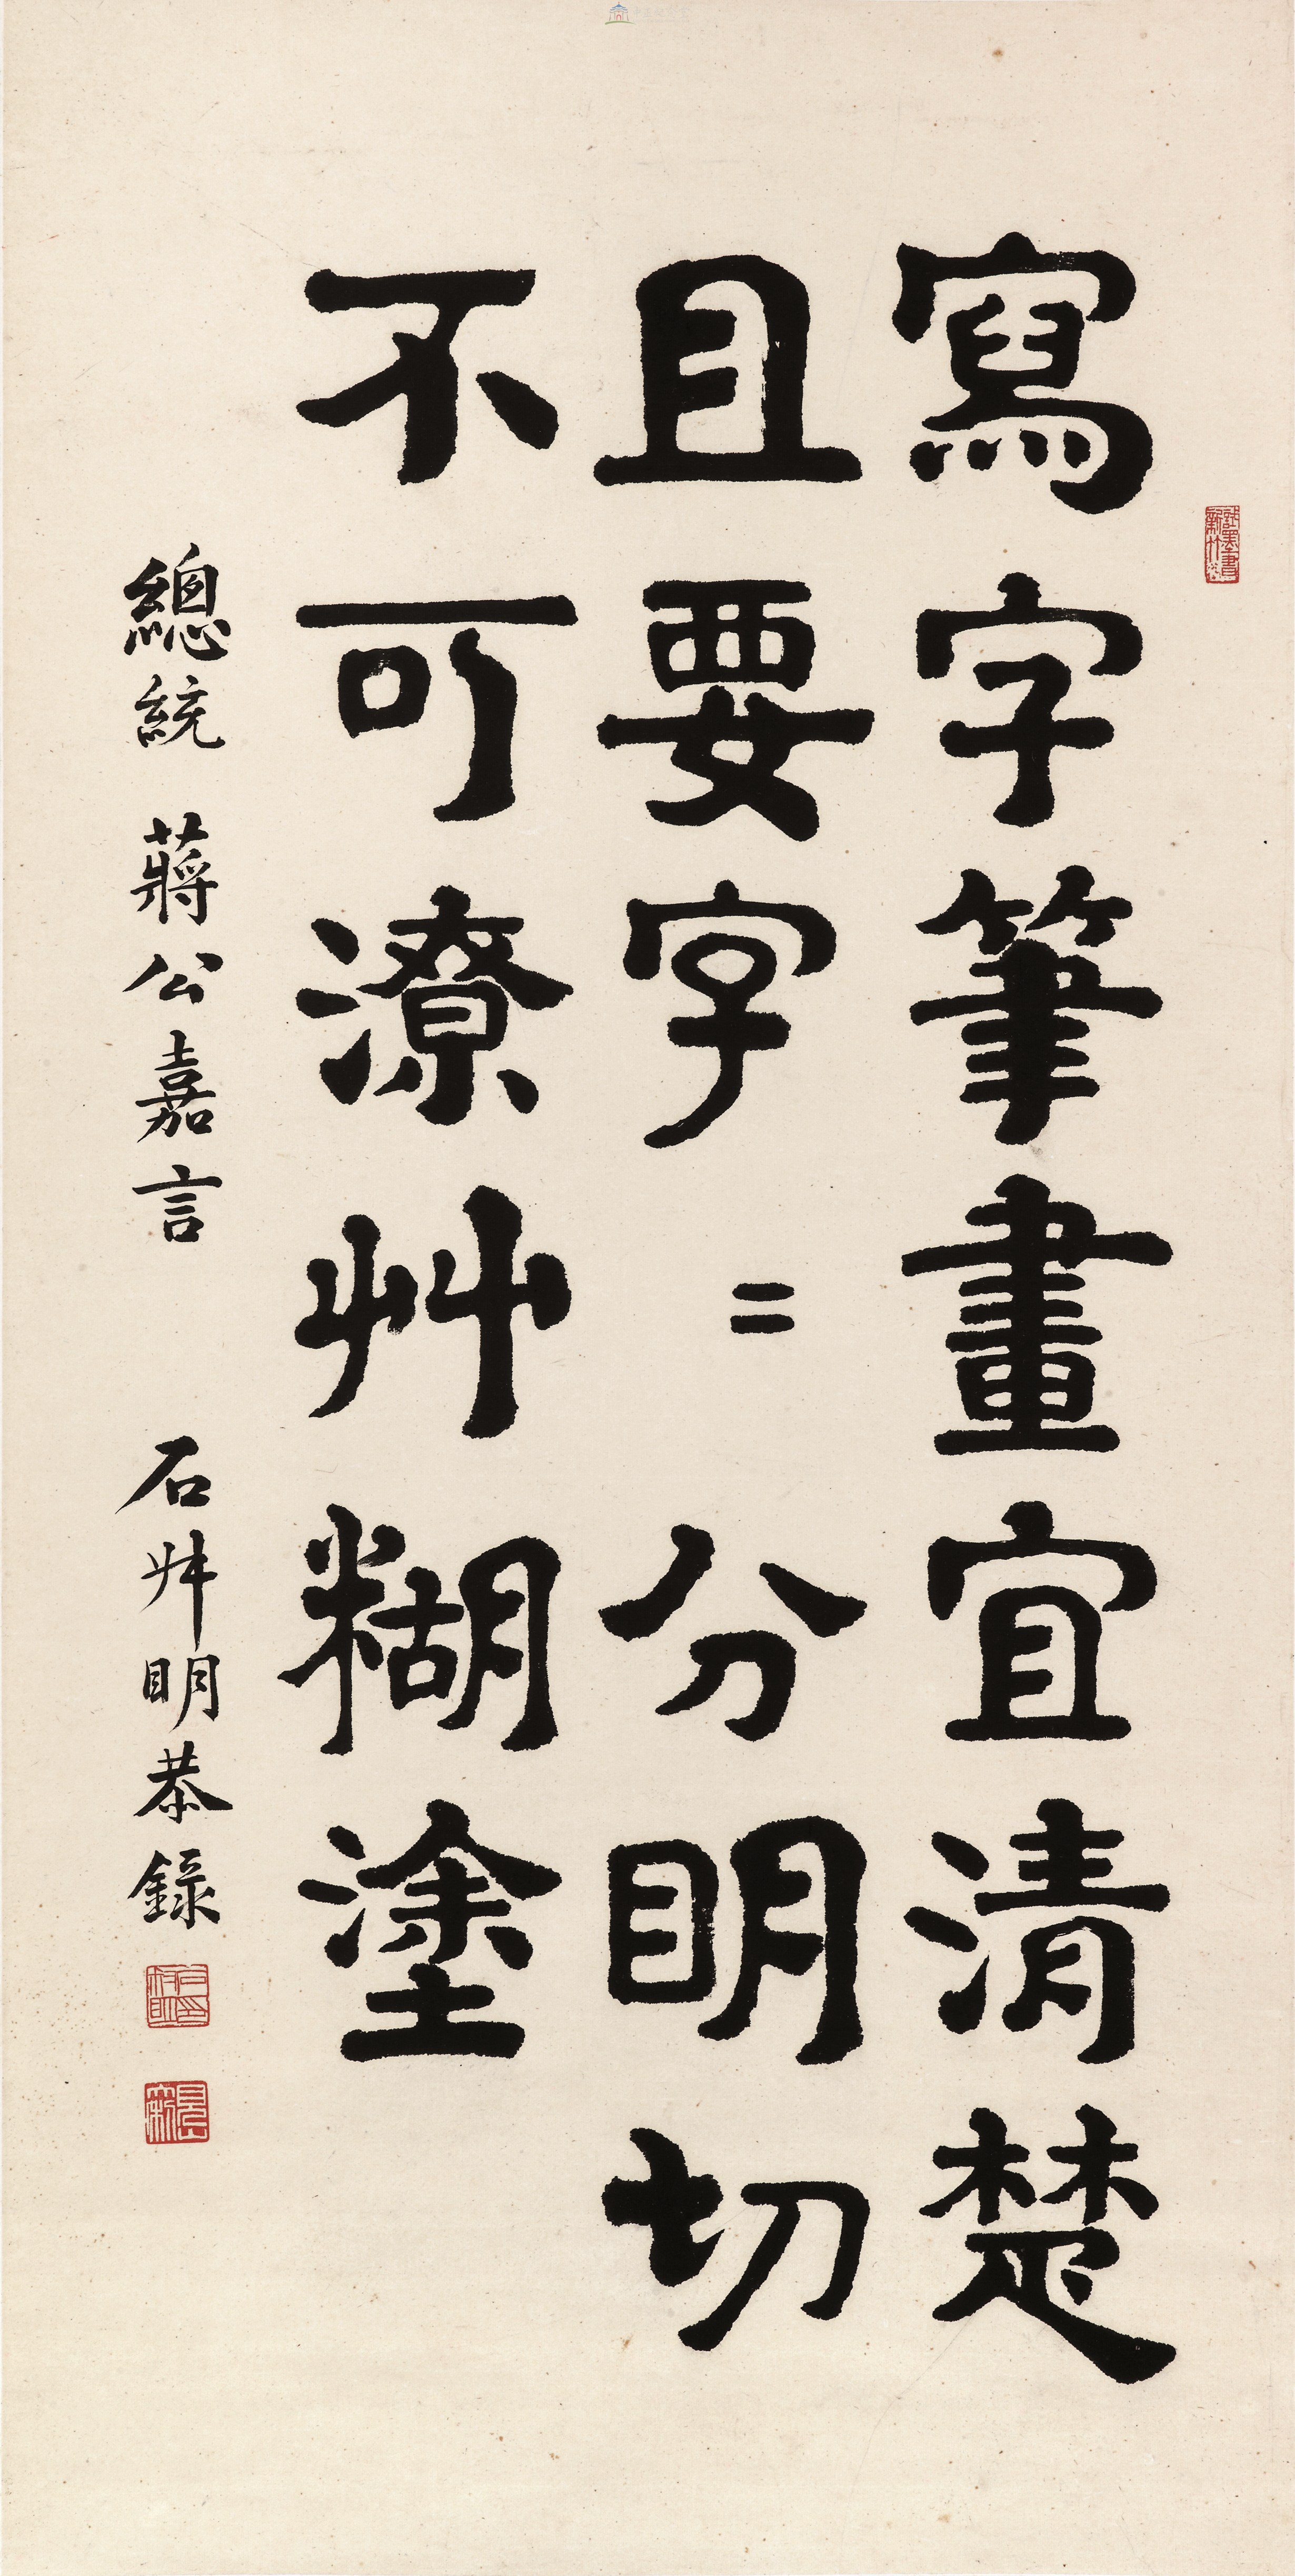 寫字筆畫宜清楚
且要字〻分明切
不可潦艸糊塗
總統 蔣公嘉言 石艸明恭錄